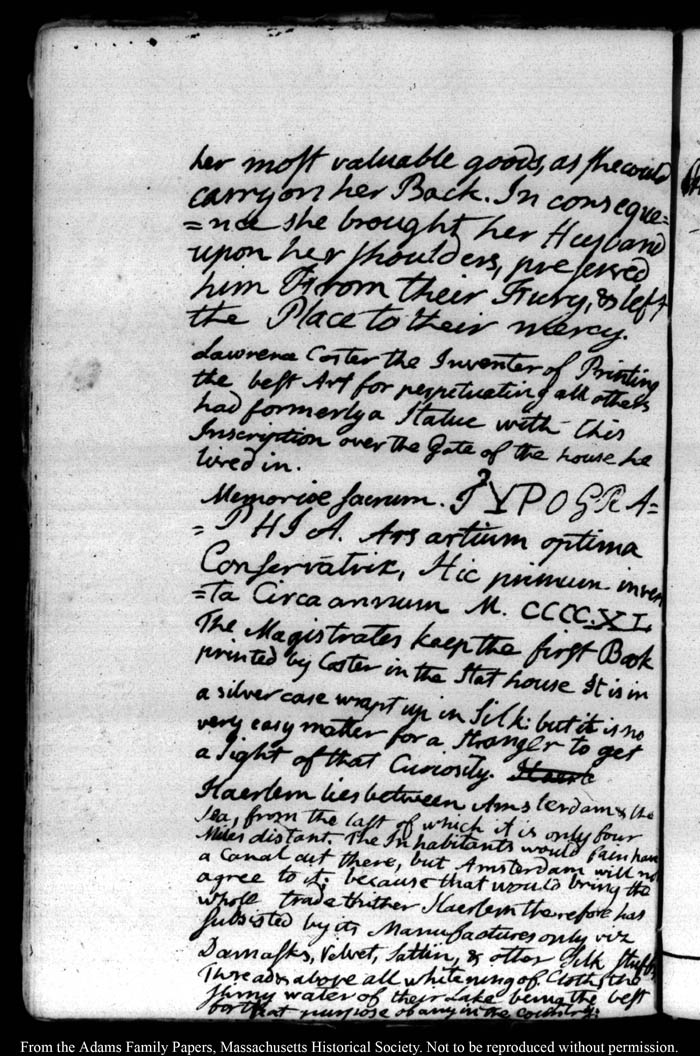 her most valuable goods, as she could
carry on her Back. In conseque=
=nce she brought her Husband
upon her shoulders, preserved
him From their Fury, & left
the Place to their mercy.
Lawrence Coster the Inventer of Printing
the best Art for perpetuating all others
had formerly a Statue with this
Inscription over the Gate of the house he
lived in.
Memorioe sacrum. TYPOGRA=
=PHIA. Ars artium optima
Conservatrix, Hic primum inven
=ta Circa annum M. CCCC.XL
The Magistrates keep the first Book
printed by Coster in the Stat house It is in
a silver case wrapt up in Silk: but it is no
very easy matter for a Stranger to get
a sight of that Curiosity. Haerle
Haerlem lies between Amsterdam & the
Sea, from the last of which it is only four
Miles distant. The Inhabitants would fain have
a Canal cut there, but Amsterdam will no
agree to it; because that would bring the
whole trade thither Haerlem therefore has
subsisted by its Manufactures only viz
Damasks, Velvet, Sattin, & other Silk Stuffs
Threads above all whitening of Cloths, the
slimy water of their Lake being the best
for that purpose of any in the country.
From the Adams Family Papers, Massachusetts Historical Society. Not to be reproduced without permission.